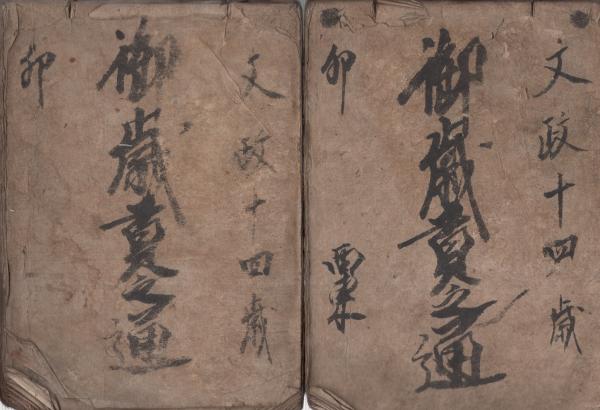 文政十四歳
御歳貢之通
卯
文政十四歳
御歳貢之通
卯